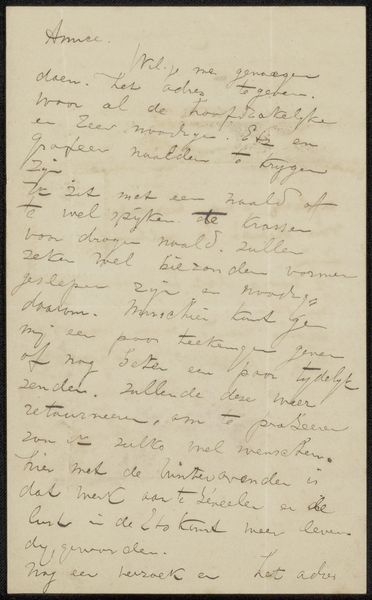 Amice.
Wil je me genoegen
doen. het adres te geven.
waar al de hoofdzakelijke
en zeer noodige. Ets en
graveer naalden te krygen
zijn
Ik zit met een naald of
te wel spyker te krassen
voor droge naald. zullen
zeker wel byzonder vormen
geslepen zijn en noodig
daarom. Misschien kunt gy
mij een paar teekeningen geven
of nog beter een paar tydelyk
zenden. zullende deze weer
retourneeren, om te probeeren
zou ik zulks wel wenschen.
hier met de winteravonden is
dat werk aan te bevelen en de
lust in de Etskunst weer leven
dig geworden.
Nog een verzoek en het adres